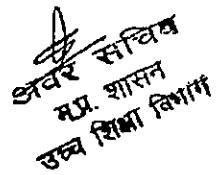 अवर सचिव
म.प्र. शासन
उच्च शिक्षा विभाग